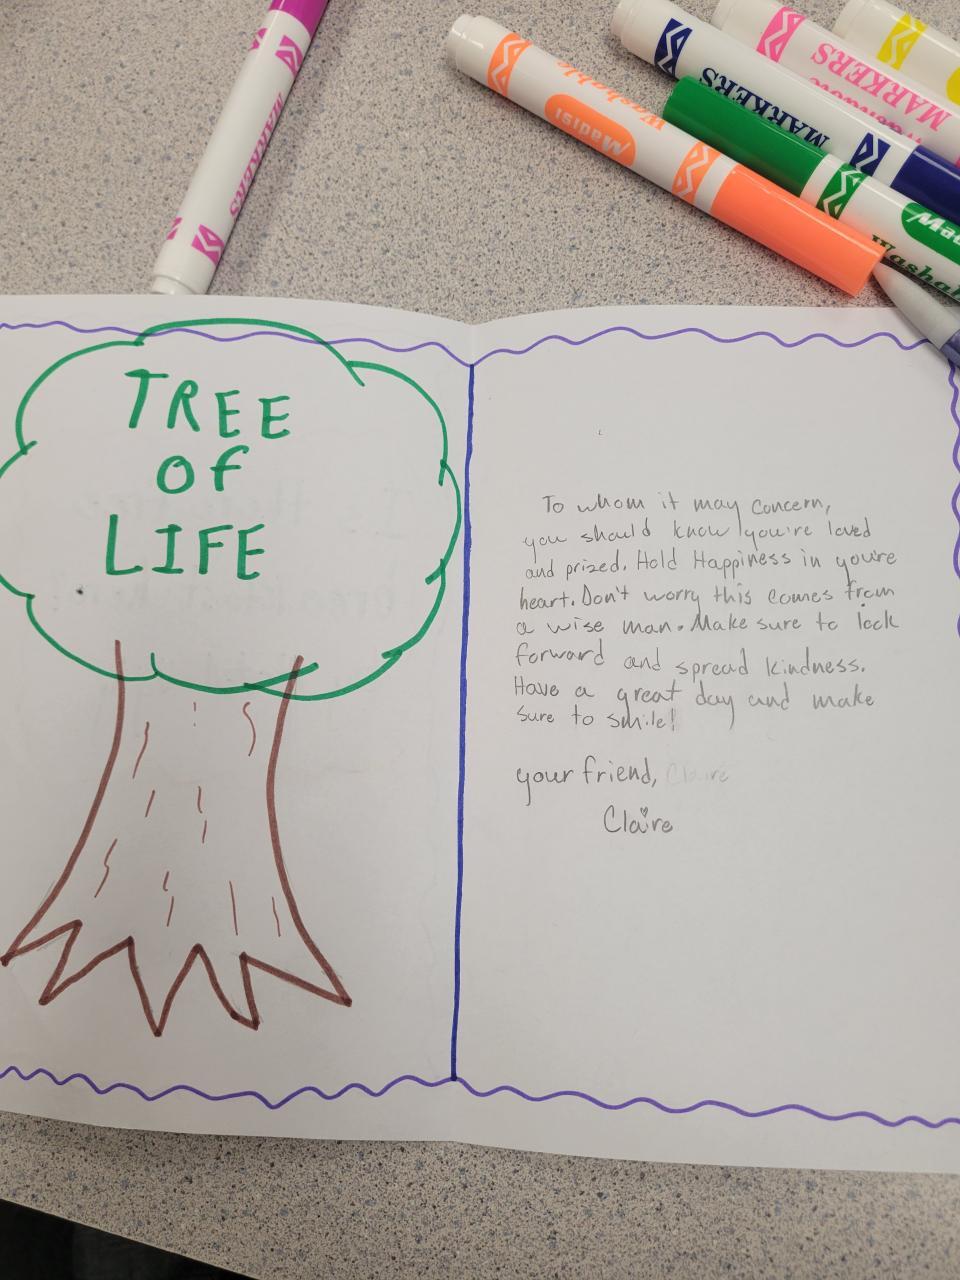 MARKERS
Washable
Madisi
MARKERS
MARKERS
Washable
TREE
Of
LIFE
To whom it may concern,
you should know you're loved
and prized. Hold Happiness in you're
heart. Don't worry this comes from
a wise man. Make sure to look
forward and spread kindness.
Have a great day and make
sure to smile!
your friend, Claire
Claire